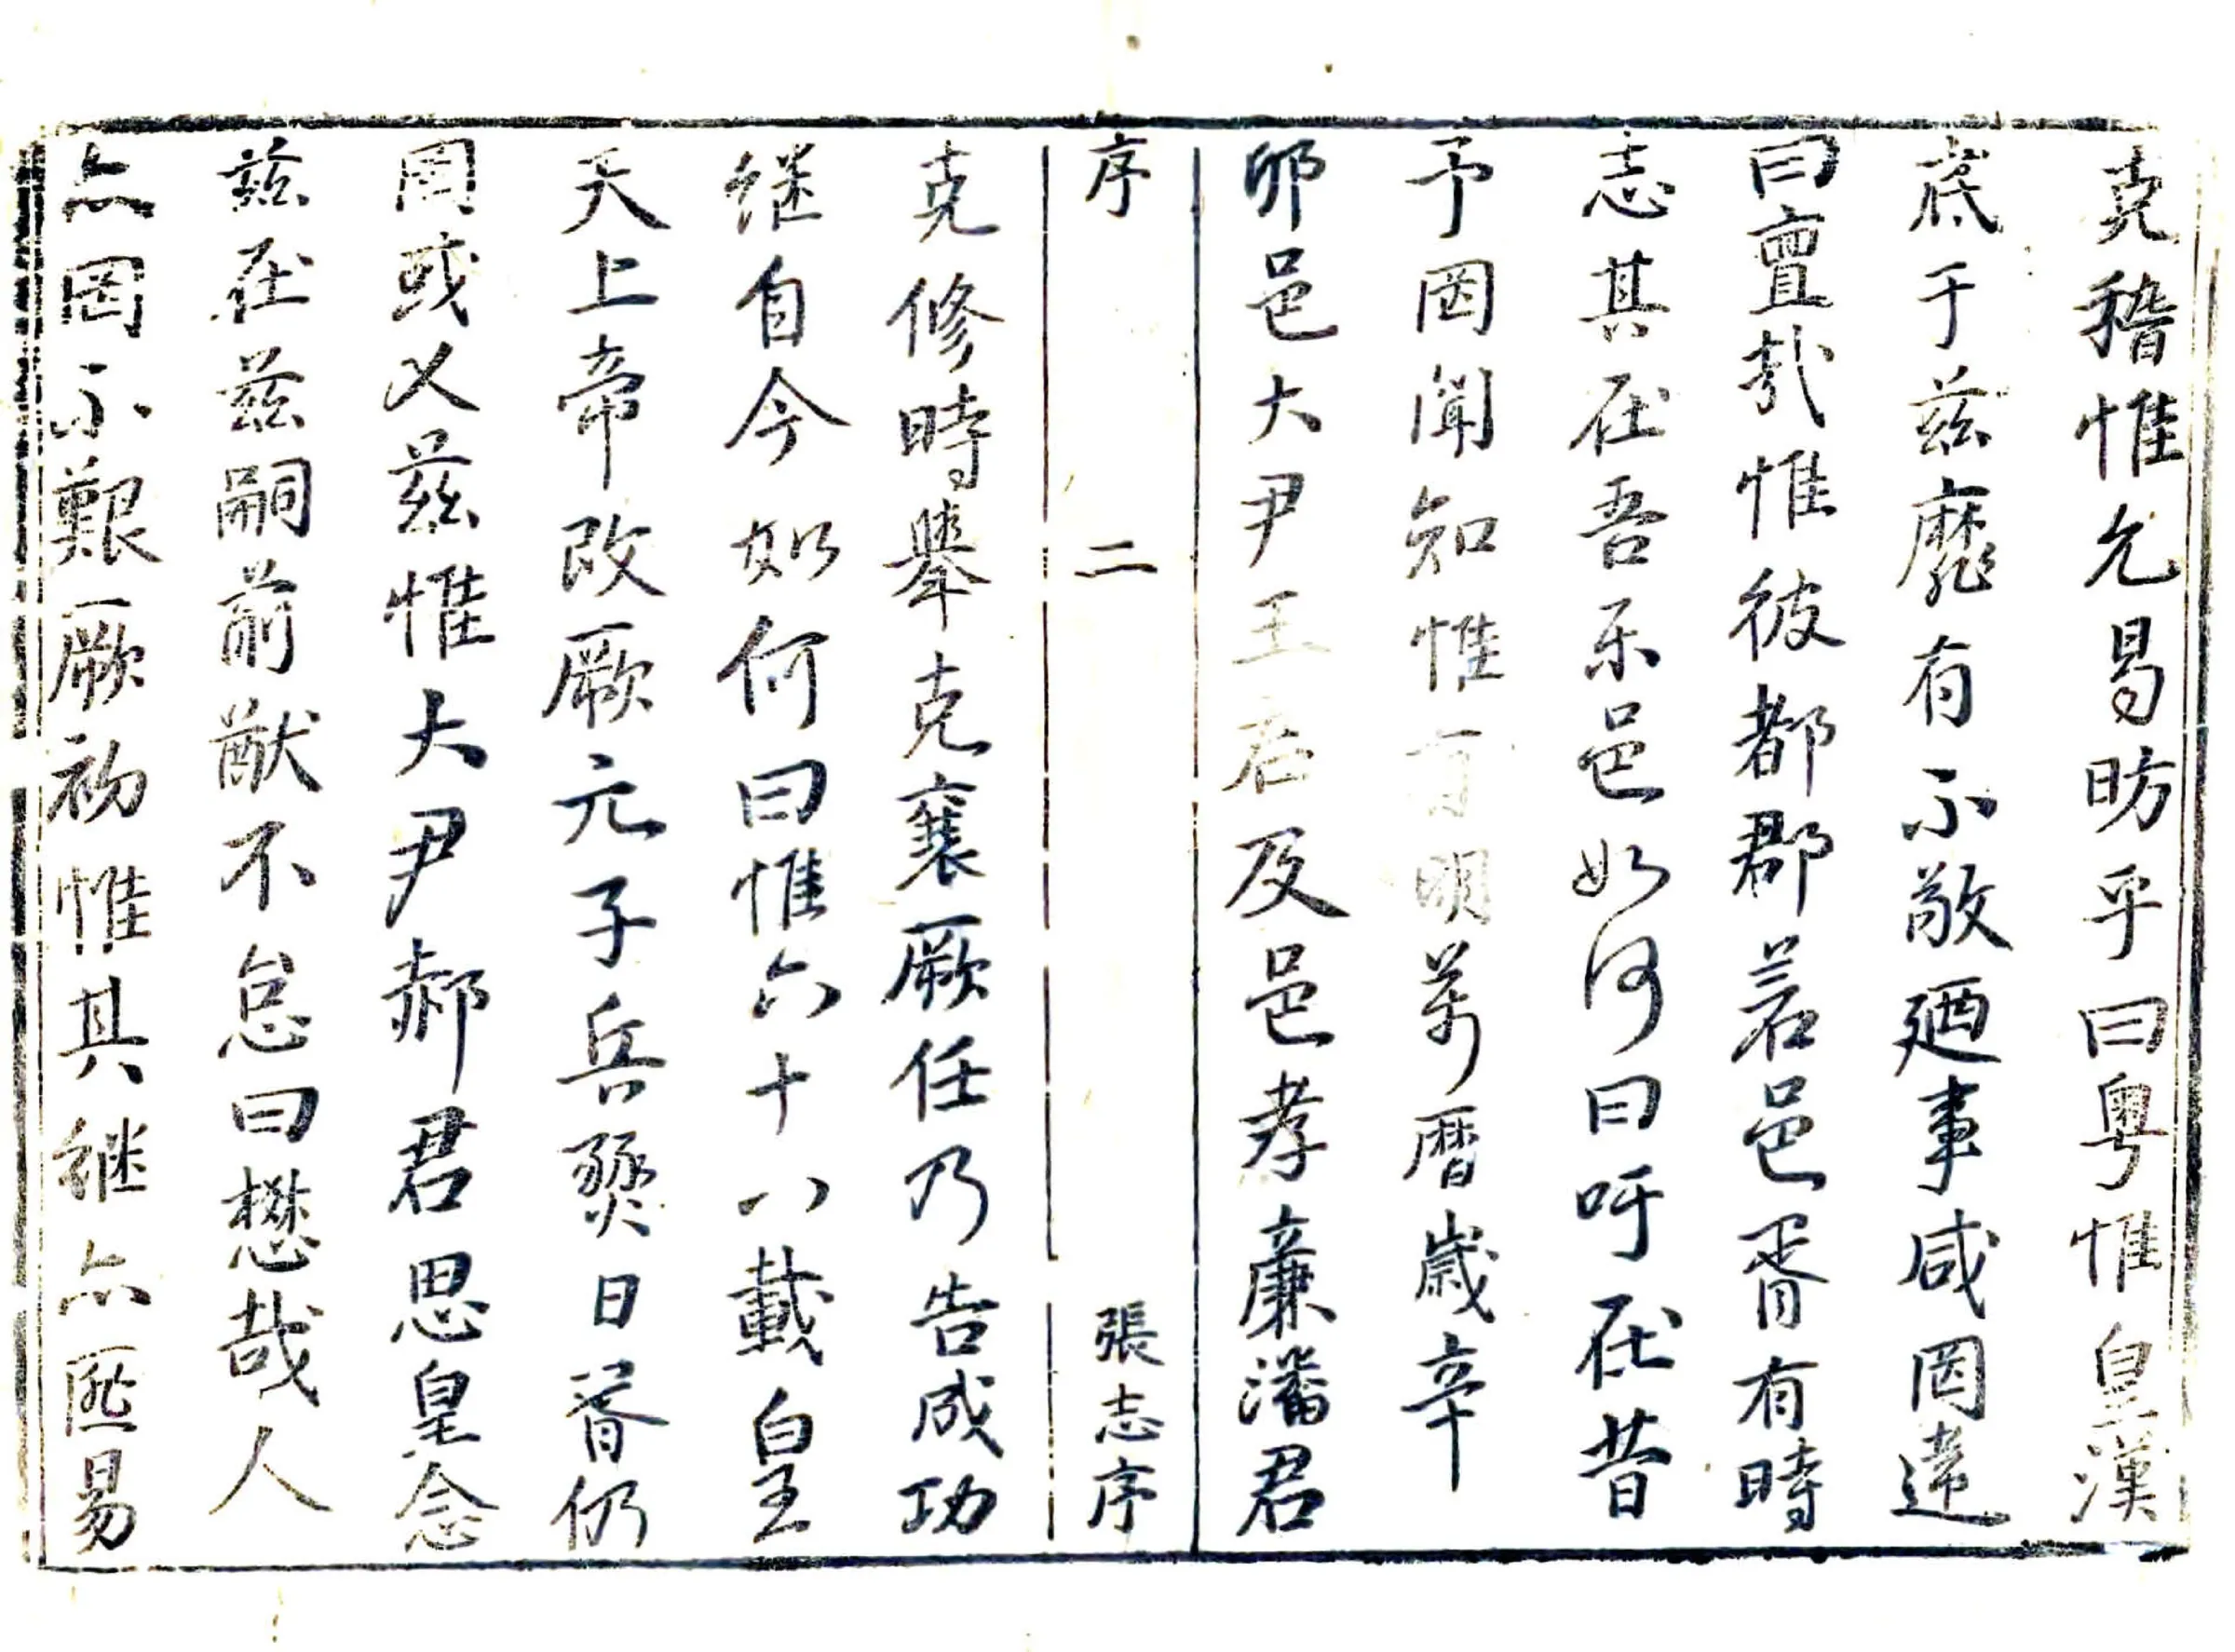 克稽惟允曷昉乎曰粤惟皇漢
底于兹靡有不敬廼事咸罔違
曰亶哉惟彼都郡若邑胥有時
志其在吾乐邑如何曰吁在昔
予罔聞知惟有明萬曆歲辛
卯邑大尹王君及邑孝廉潘君
序 二 張志序
克修時舉克襄厥任乃告成功
継自今如何曰惟六十八載皇
天上帝改厥元子兵燹日胥仍
罔或乂兹惟大尹郝君思皇念
兹在兹嗣前猷不怠曰懋哉人
亦罔不艱厥初惟其継亦匪易